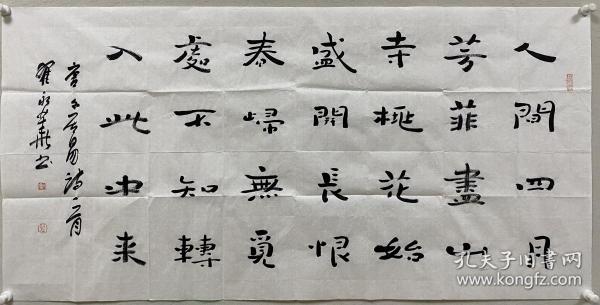 人間四月
芳菲盡山
寺桃花始
盛開長恨
春歸無覓
處不知轉
入此中来
唐白居易詩一首
翟永華书
孔夫子旧书网
www.kongfz.com